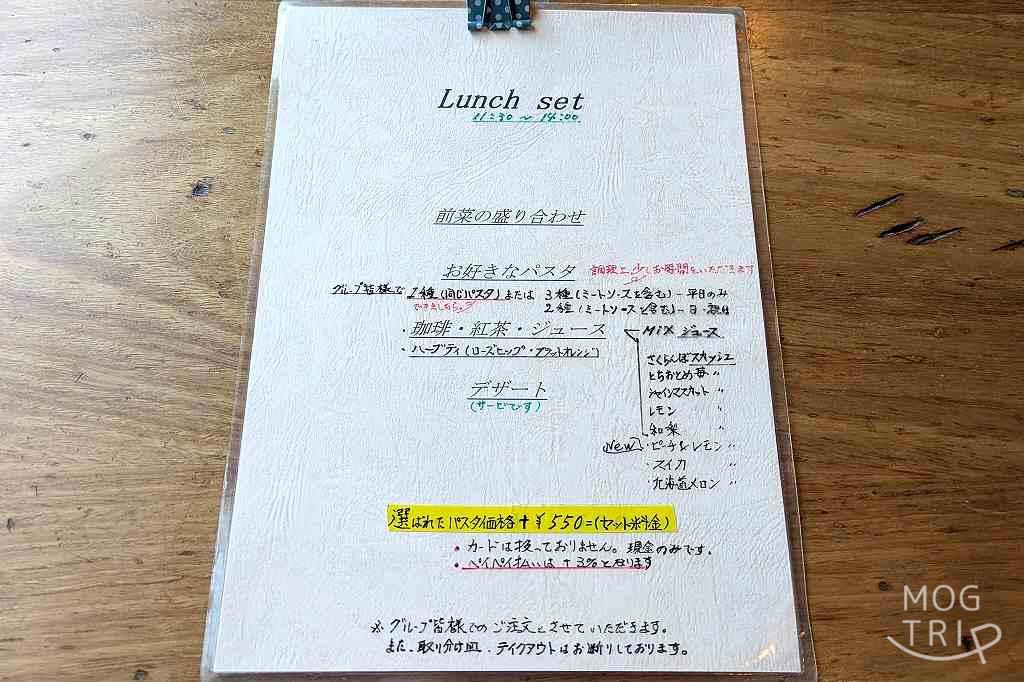 Lunch set
11:30 ~ 14:00
前菜の盛り合わせ
お好きなパスタ 調理に少しお時間をいただきます
グループ皆様で 1種(同じパスタ)または 3種(ミートソースを含む)ー平日のみ
2種(ミートソースを含む)ー日・祝日
・珈琲・紅茶・ジュース
・ハーブティ(ローズヒップ・ブラットオレンジ)
MiX ジュース
さくらんぼスカッシュ
とちおとめ苺 〃
シャインマスカット 〃
レモン 〃
和梨 〃
New ・ピーチ&レモン 〃
・スイカ 〃
・北海道メロン 〃
デザート
(サービスです)
選ばれたパスタ価格+¥550=(セット料金)
・カードは扱っておりません。現金のみです。
・ペイペイ払いは+3%となります
※グループ皆様でのご注文とさせていただきます。
また、取り分け皿、テイクアウトはお断りしております。
MOG
TRIP